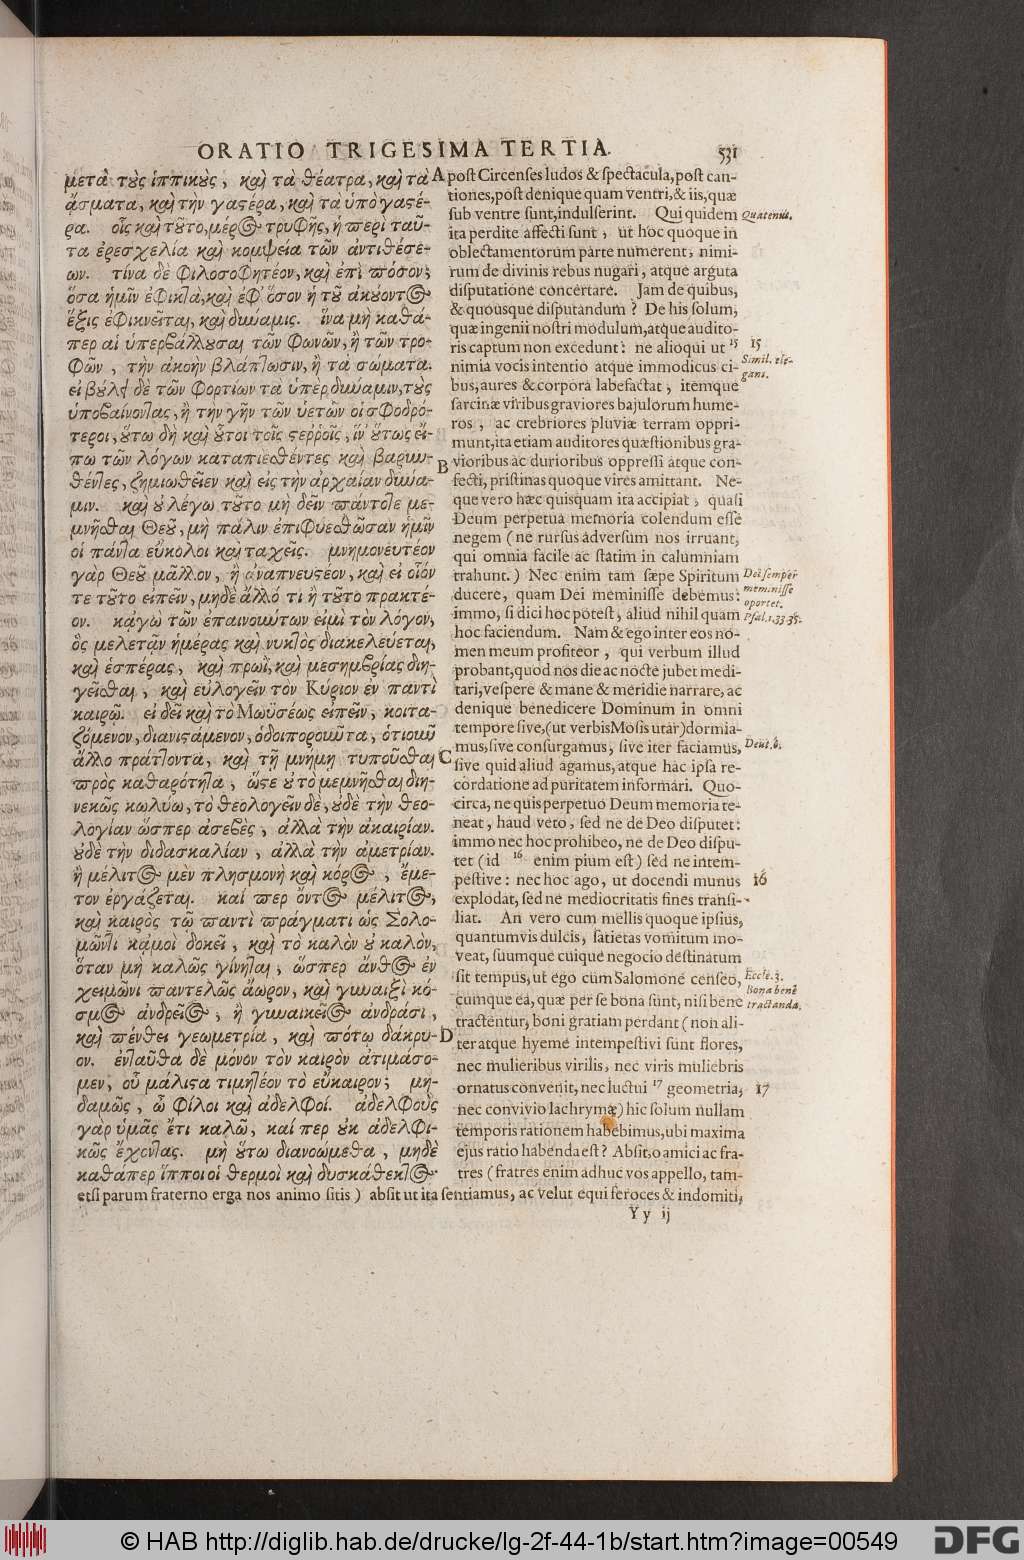 ORATIO TRIGESIMA TERTIA. 531
μετὰ τοὺς ἱππικοὺς, καὶ τὰ θέατρα, καὶ τὰ
ᾄσματα, καὶ τὴν γαστέρα, καὶ τὰ ὑπὸ γαστέ-
ρα. οἷς καὶ τοῦτο, μέρος τρυφῆς, ἡ περὶ ταῦ-
τα ἐρεσχελία καὶ κομψεία τῶν ἀντιθέσε-
ων. τίνα δὲ φιλοσοφητέον, καὶ ἐπὶ πόσον;
ὅσα ἡμῖν ἐφικτὰ, καὶ ἐφ' ὅσον ἡ τοῦ ἀκούοντος
ἕξις ἐφικνεῖται, καὶ δύναμις. ἵνα μὴ καθά-
περ αἱ ὑπερβάλλουσαι τῶν φωνῶν, ἢ τῶν τρο-
φῶν, τὴν ἀκοὴν βλάπτωσιν, ἢ τὰ σώματα.
εἰ βούλει δὲ τῶν φορτίων τὰ ὑπὲρ δύναμιν, τοὺς
ὑποβαίνοντας, ἢ τὴν γῆν τῶν ὑετῶν οἱ σφοδρό-
τεροι, οὕτω δὴ καὶ οὗτοι τοῖς στεῤῥοῖς, ἵν' οὕτως εἴ-
πω τῶν λόγων καταπιεσθέντες καὶ βαρυν-
θέντες, ζημιωθεῖεν καὶ εἰς τὴν ἀρχαίαν δύνα-
μιν. καὶ οὐ λέγω τοῦτο μὴ δεῖν πάντοτε με-
μνῆσθαι Θεοῦ, μὴ πάλιν ἐπιφυέσθωσαν ἡμῖν
οἱ πάντα εὔκολοι καὶ ταχεῖς. μνημονευτέον
γὰρ Θεοῦ μᾶλλον, ἢ ἀναπνευστέον, καὶ εἰ οἷόν
τε τοῦτο εἰπεῖν, μηδὲ ἄλλό τι ἢ τοῦτο πρακτέ-
ον. κἀγὼ τῶν ἐπαινούντων εἰμὶ τὸν λόγον,
ὃς μελετᾷν ἡμέρας καὶ νυκτὸς διακελεύεται,
καὶ ἑσπέρας, καὶ πρωῒ, καὶ μεσημβρίας διη-
γεῖσθαι, καὶ εὐλογεῖν τὸν Κύριον ἐν παντὶ
καιρῷ. εἰ δεῖ καὶ τὸ Μωϋσέως εἰπεῖν, κοιτα-
ζόμενον, διανιστάμενον, ὁδοιποροῦντα, ὁτιοῦν
ἄλλο πράττοντα, καὶ τῇ μνήμῃ τυποῦσθαι
πρὸς καθαρότητα, ὥστε οὐ τὸ μεμνῆσθαι διη-
νεκῶς κωλύω, τὸ θεολογεῖν δὲ, οὐδὲ τὴν θεο-
λογίαν ὥσπερ ἀσεβὲς, ἀλλὰ τὴν ἀκαιρίαν.
οὐδὲ τὴν διδασκαλίαν, ἀλλὰ τὴν ἀμετρίαν.
ἢ μέλιτος μὲν πλησμονὴ καὶ κόρος, ἔμε-
τον ἐργάζεται, καί περ ὄντος μέλιτος,
καὶ καιρὸς τῷ παντὶ πράγματι ὡς Σολο-
μῶντι κἀμοὶ δοκεῖ, καὶ τὸ καλὸν οὐ καλὸν,
ὅταν μὴ καλῶς γίνηται, ὥσπερ ἄνθος ἐν
χειμῶνι παντελῶς ἄωρον, καὶ γυναιξὶ κό-
σμος ἀνδρεῖος, ἢ γυναικεῖος ἀνδράσι,
καὶ πένθει γεωμετρία, καὶ πότῳ δάκρυ-
ον. ἐνταῦθα δὲ μόνον τὸν καιρὸν ἀτιμάσο-
μεν, οὗ μάλιστα τιμητέον τὸ εὔκαιρον; μη-
δαμῶς, ὦ φίλοι καὶ ἀδελφοί. ἀδελφοὺς
γὰρ ὑμᾶς ἔτι καλῶ, καί περ οὐκ ἀδελφι-
κῶς ἔχοντας. μὴ οὕτω διανοώμεθα, μηδὲ
καθάπερ ἵπποι οἱ θερμοὶ καὶ δυσκάθεκτος
A post Circenses ludos & spectacula, post can-
tiones, post denique quam ventri, & iis, quæ
sub ventre sunt, indulserint. Qui quidem
ita perdite affecti sunt, ut hoc quoque in
oblectamentorum parte numerent, nimi-
rum de divinis rebus nugari, atque arguta
disputatione concertare. Jam de quibus,
& quousque disputandum? De his solum,
quæ ingenii nostri modulum, atque audito-
ris captum non excedunt: ne alioqui ut 15
nimia vocis intentio atque immodicus ci-
bus, aures & corpora labefactat, itemque
sarcinæ viribus graviores bajulorum hume-
ros, ac crebriores pluviæ terram oppri-
munt, ita etiam auditores quæstionibus gra-
B vioribus ac durioribus oppressi atque con-
fecti, pristinas quoque vires amittant. Ne-
que vero hæc quisquam ita accipiat, quasi
Deum perpetua memoria colendum esse
negem (ne rursus adversùm nos irruant,
qui omnia facile ac statim in calumniam
trahunt.) Nec enim tam sæpe Spiritum
ducere, quam Dei meminisse debemus:
immo, si dici hoc potest, aliud nihil quam
hoc faciendum. Nam & ego inter eos no-
men meum profiteor, qui verbum illud
probant, quod nos die ac nocte jubet medi-
tari, vespere & mane & meridie narrare, ac
denique benedicere Dominum in omni
tempore sive, (ut verbis Mosis utar) dormia-
mus, sive consurgamus, sive iter faciamus,
C sive quid aliud agamus, atque hac ipsa re-
cordatione ad puritatem informari. Quo-
circa, ne quis perpetuo Deum memoria te-
neat, haud veto, sed ne de Deo disputet:
immo nec hoc prohibeo, ne de Deo dispu-
tet (id 16 enim pium est) sed ne intem-
pestive: nec hoc ago, ut docendi munus
explodat, sed ne mediocritatis fines transi-
liat. An vero cum mellis quoque ipsius,
quantumvis dulcis, satietas vomitum mo-
veat, suumque cuique negocio destinatum
sit tempus, ut ego cum Salomone censeo,
cumque ea, quæ per se bona sunt, nisi bene
tractentur, boni gratiam perdant (non ali-
D ter atque hyeme intempestivi sunt flores,
nec mulieribus virilis, nec viris muliebris
ornatus convenit, nec luctui 17 geometria,
nec convivio lachrymæ) hic solum nullam
temporis rationem habebimus, ubi maxima
ejus ratio habenda est? Absit, o amici ac fra-
tres (fratres enim adhuc vos appello, tam-
etsi parum fraterno erga nos animo sitis) absit ut ita sentiamus, ac velut equi feroces & indomiti,
Yy ij
Quatenus.
15
Simil. ele-
gans.
Dei semper
meminisse
oportet.
Psal. 1.33.35.
Deut. 6.
16
Eccle. 3.
Bona bene
tractanda.
17
© HAB http://diglib.hab.de/drucke/lg-2f-44-1b/start.htm?image=00549
DFG